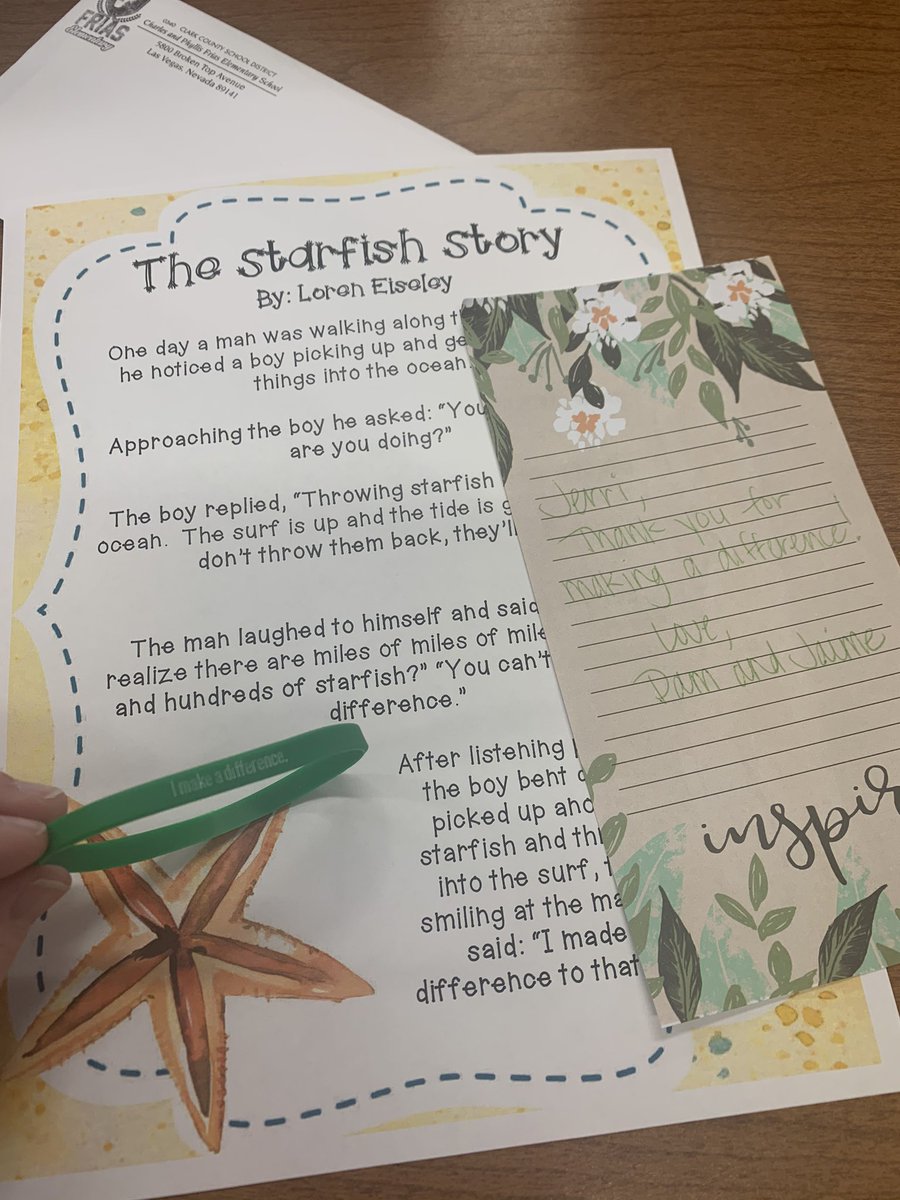 FRIAS
Elementary
CLARK COUNTY SCHOOL DISTRICT
Charles and Phyllis Frias Elementary School
5800 Broken Top Avenue
Las Vegas, Nevada 89141
The Starfish Story
By: Loren Eiseley
One day a man was walking along
he noticed a boy picking up and
things into the ocean.
Approaching the boy he asked: "You
are you doing?"
The boy replied, "Throwing starfish
ocean. The surf is up and the tide is
don't throw them back, they'll
The man laughed to himself and said
realize there are miles of miles of
and hundreds of starfish?" "You can't
difference."
After listening
the boy bent
picked up and
starfish and
into the surf,
smiling at the
said: "I made
difference to that
I make a difference.
Jerri,
Thank you for
making a difference!
Love,
Dam and Jaime
inspir